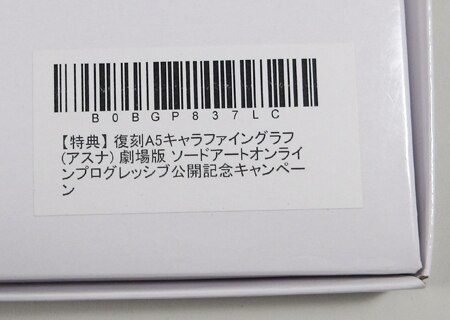 B0BGP837LC
【特典】復刻A5キャラファイングラフ
(アスナ) 劇場版 ソードアートオンライ
ンプログレッシブ公開記念キャンペー
ン